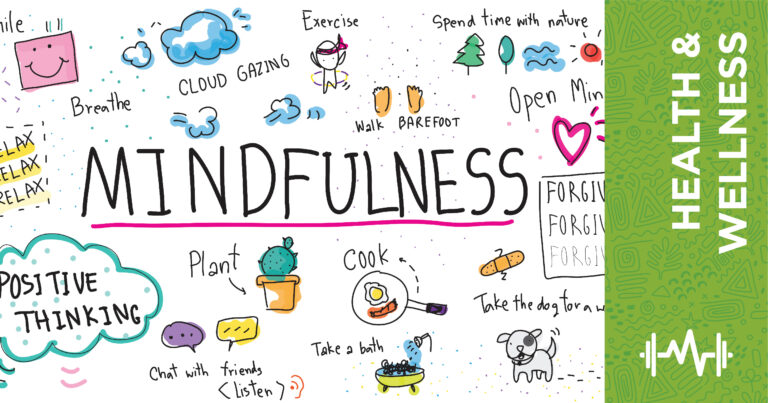 mile
Breathe
CLOUD GAZING
Exercise
Spend time with nature
Walk BAREFOOT
Open Min
RELAX
RELAX
RELAX
MINDFULNESS
FORGIV
FORGIV
FORGIV
POSITIVE
THINKING
Plant
Cook
Take the dog for a w
Chat with friends
<Listen>
Take a bath
HEALTH &
WELLNESS